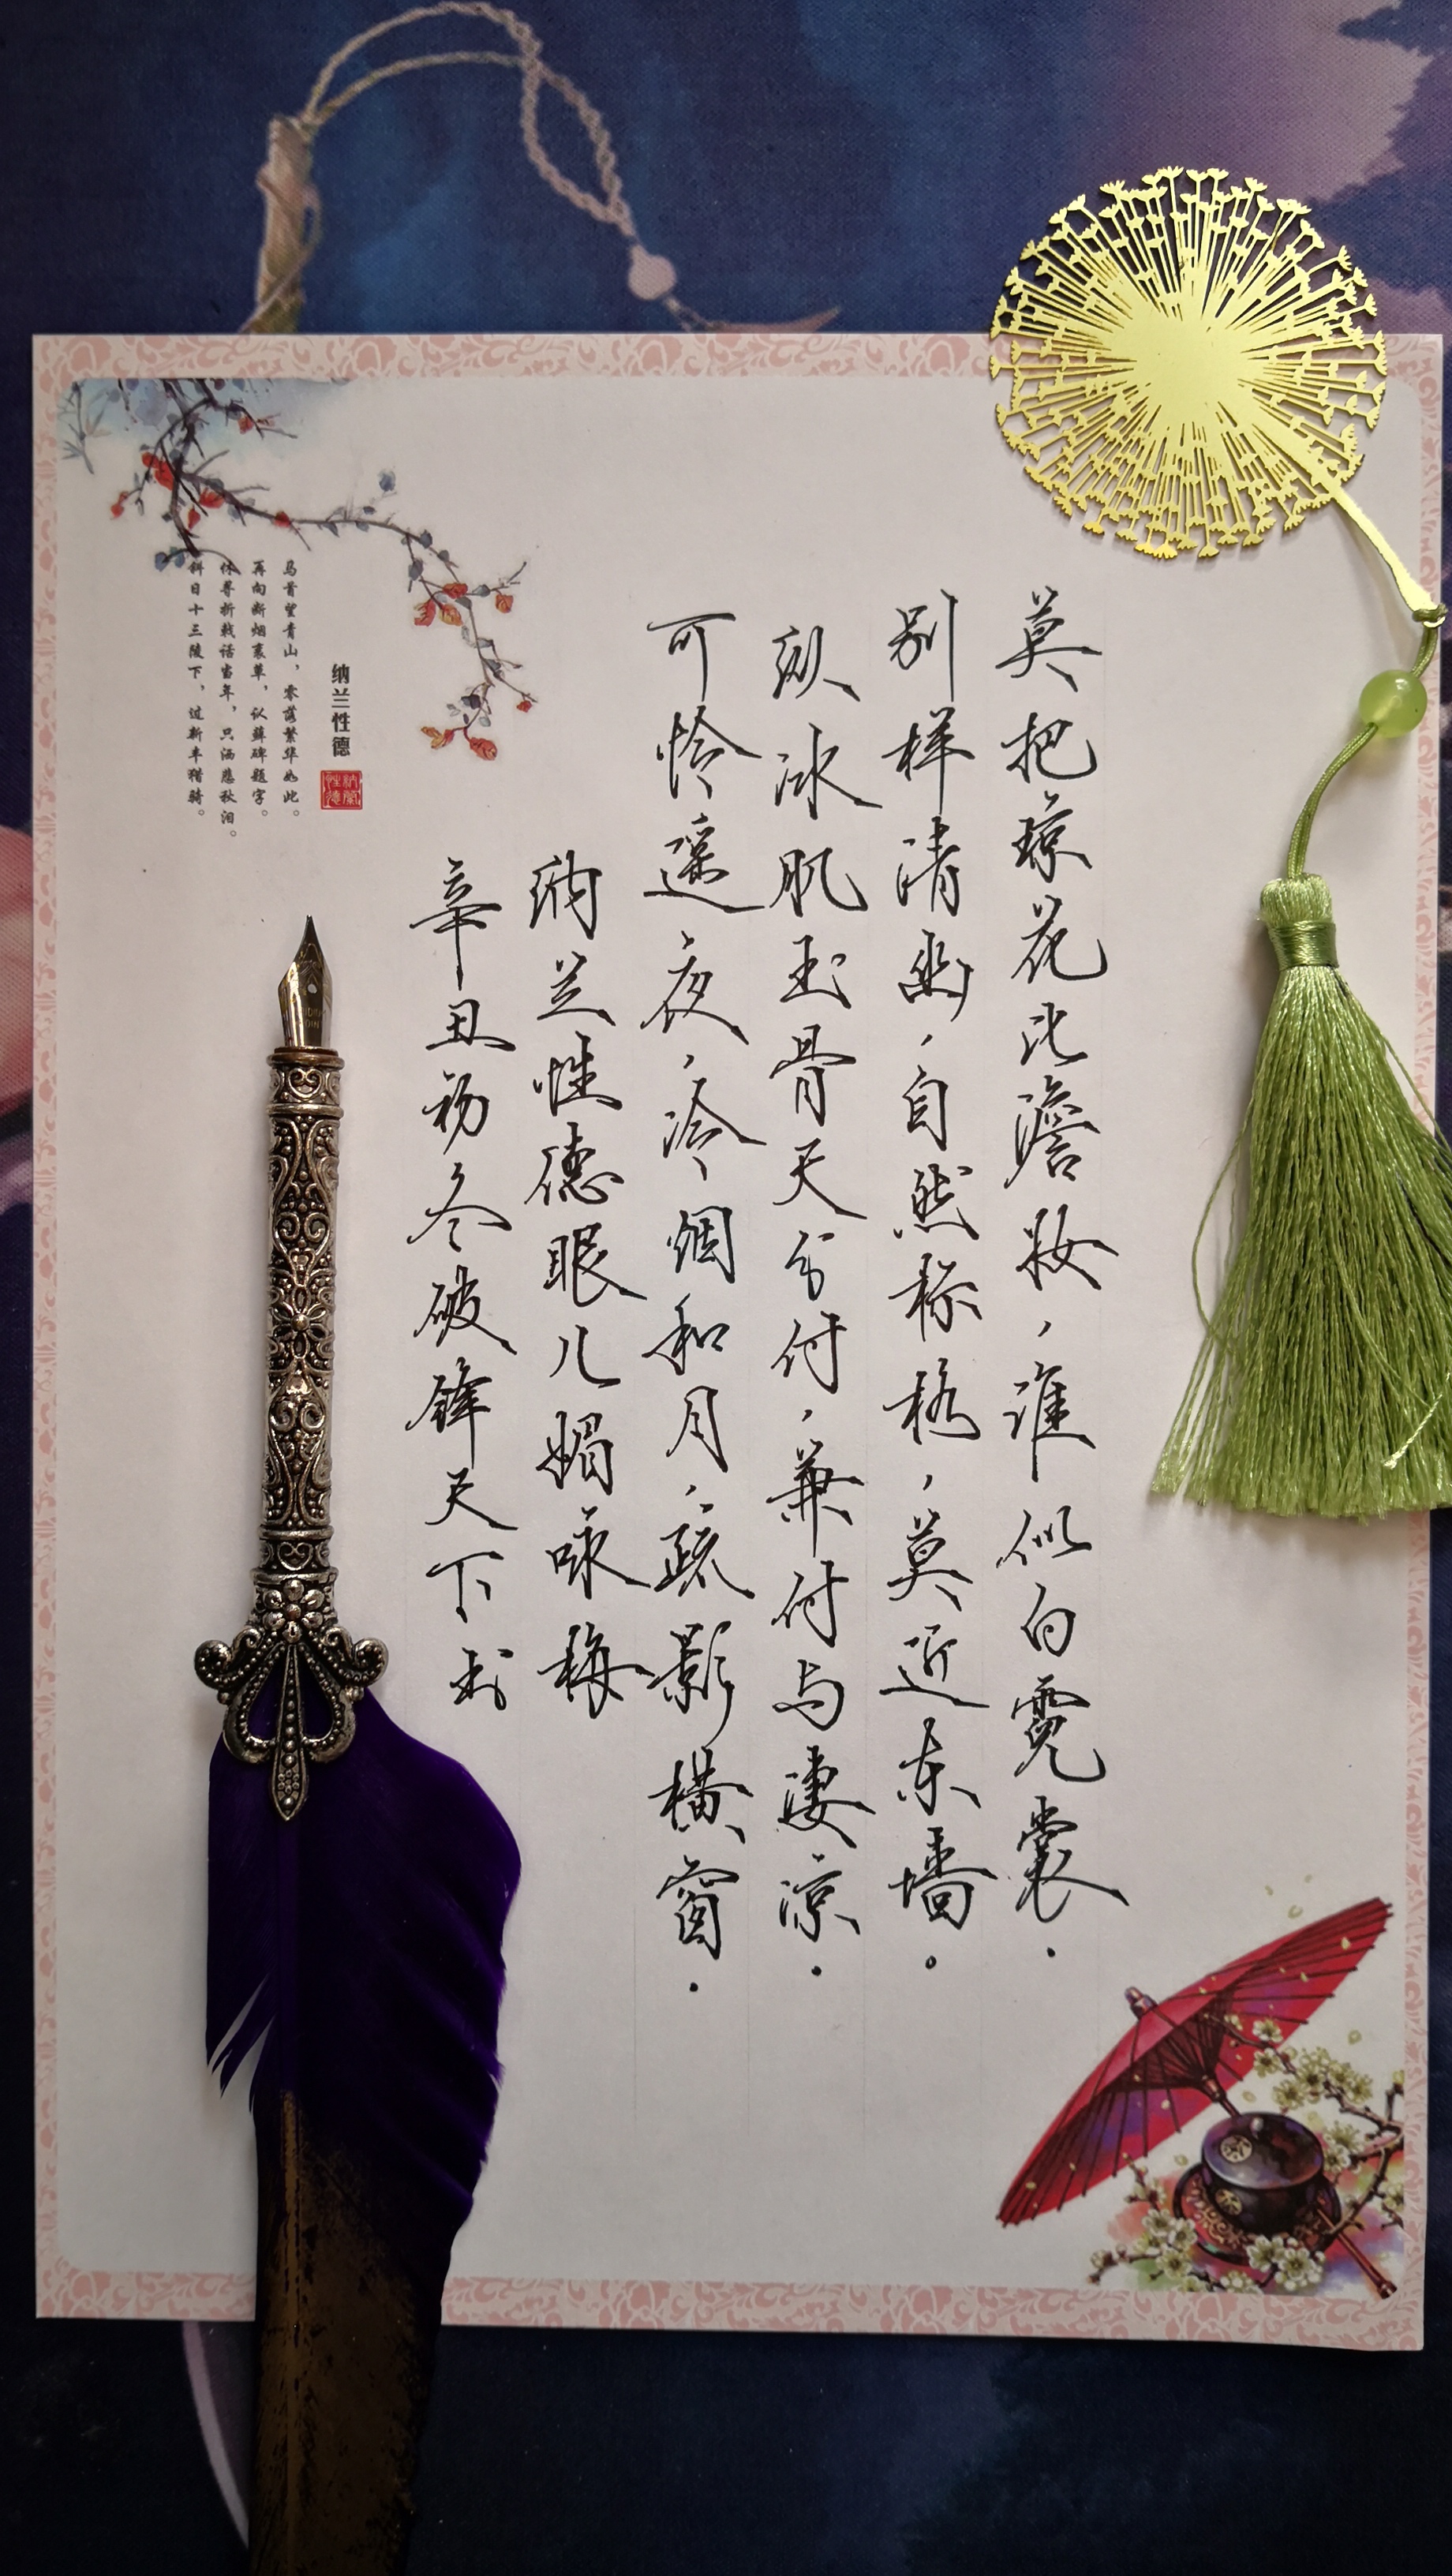 莫把琼花比澹妆,谁似白霓裳。
别样清幽,自然标格,莫近东墙。
纵冰肌玉骨天分付,兼付与凄凉。
可怜遥夜,冷烟和月,疏影横窗。
纳兰性德眼儿媚咏梅
辛丑初冬破锋天下书
纳兰性德
马首望青山,零落繁华如此。
再向断烟衰草,认藓碑题字。
休寻折戟话当年,只洒悲秋泪。
斜日十三陵下,过新丰猎骑。